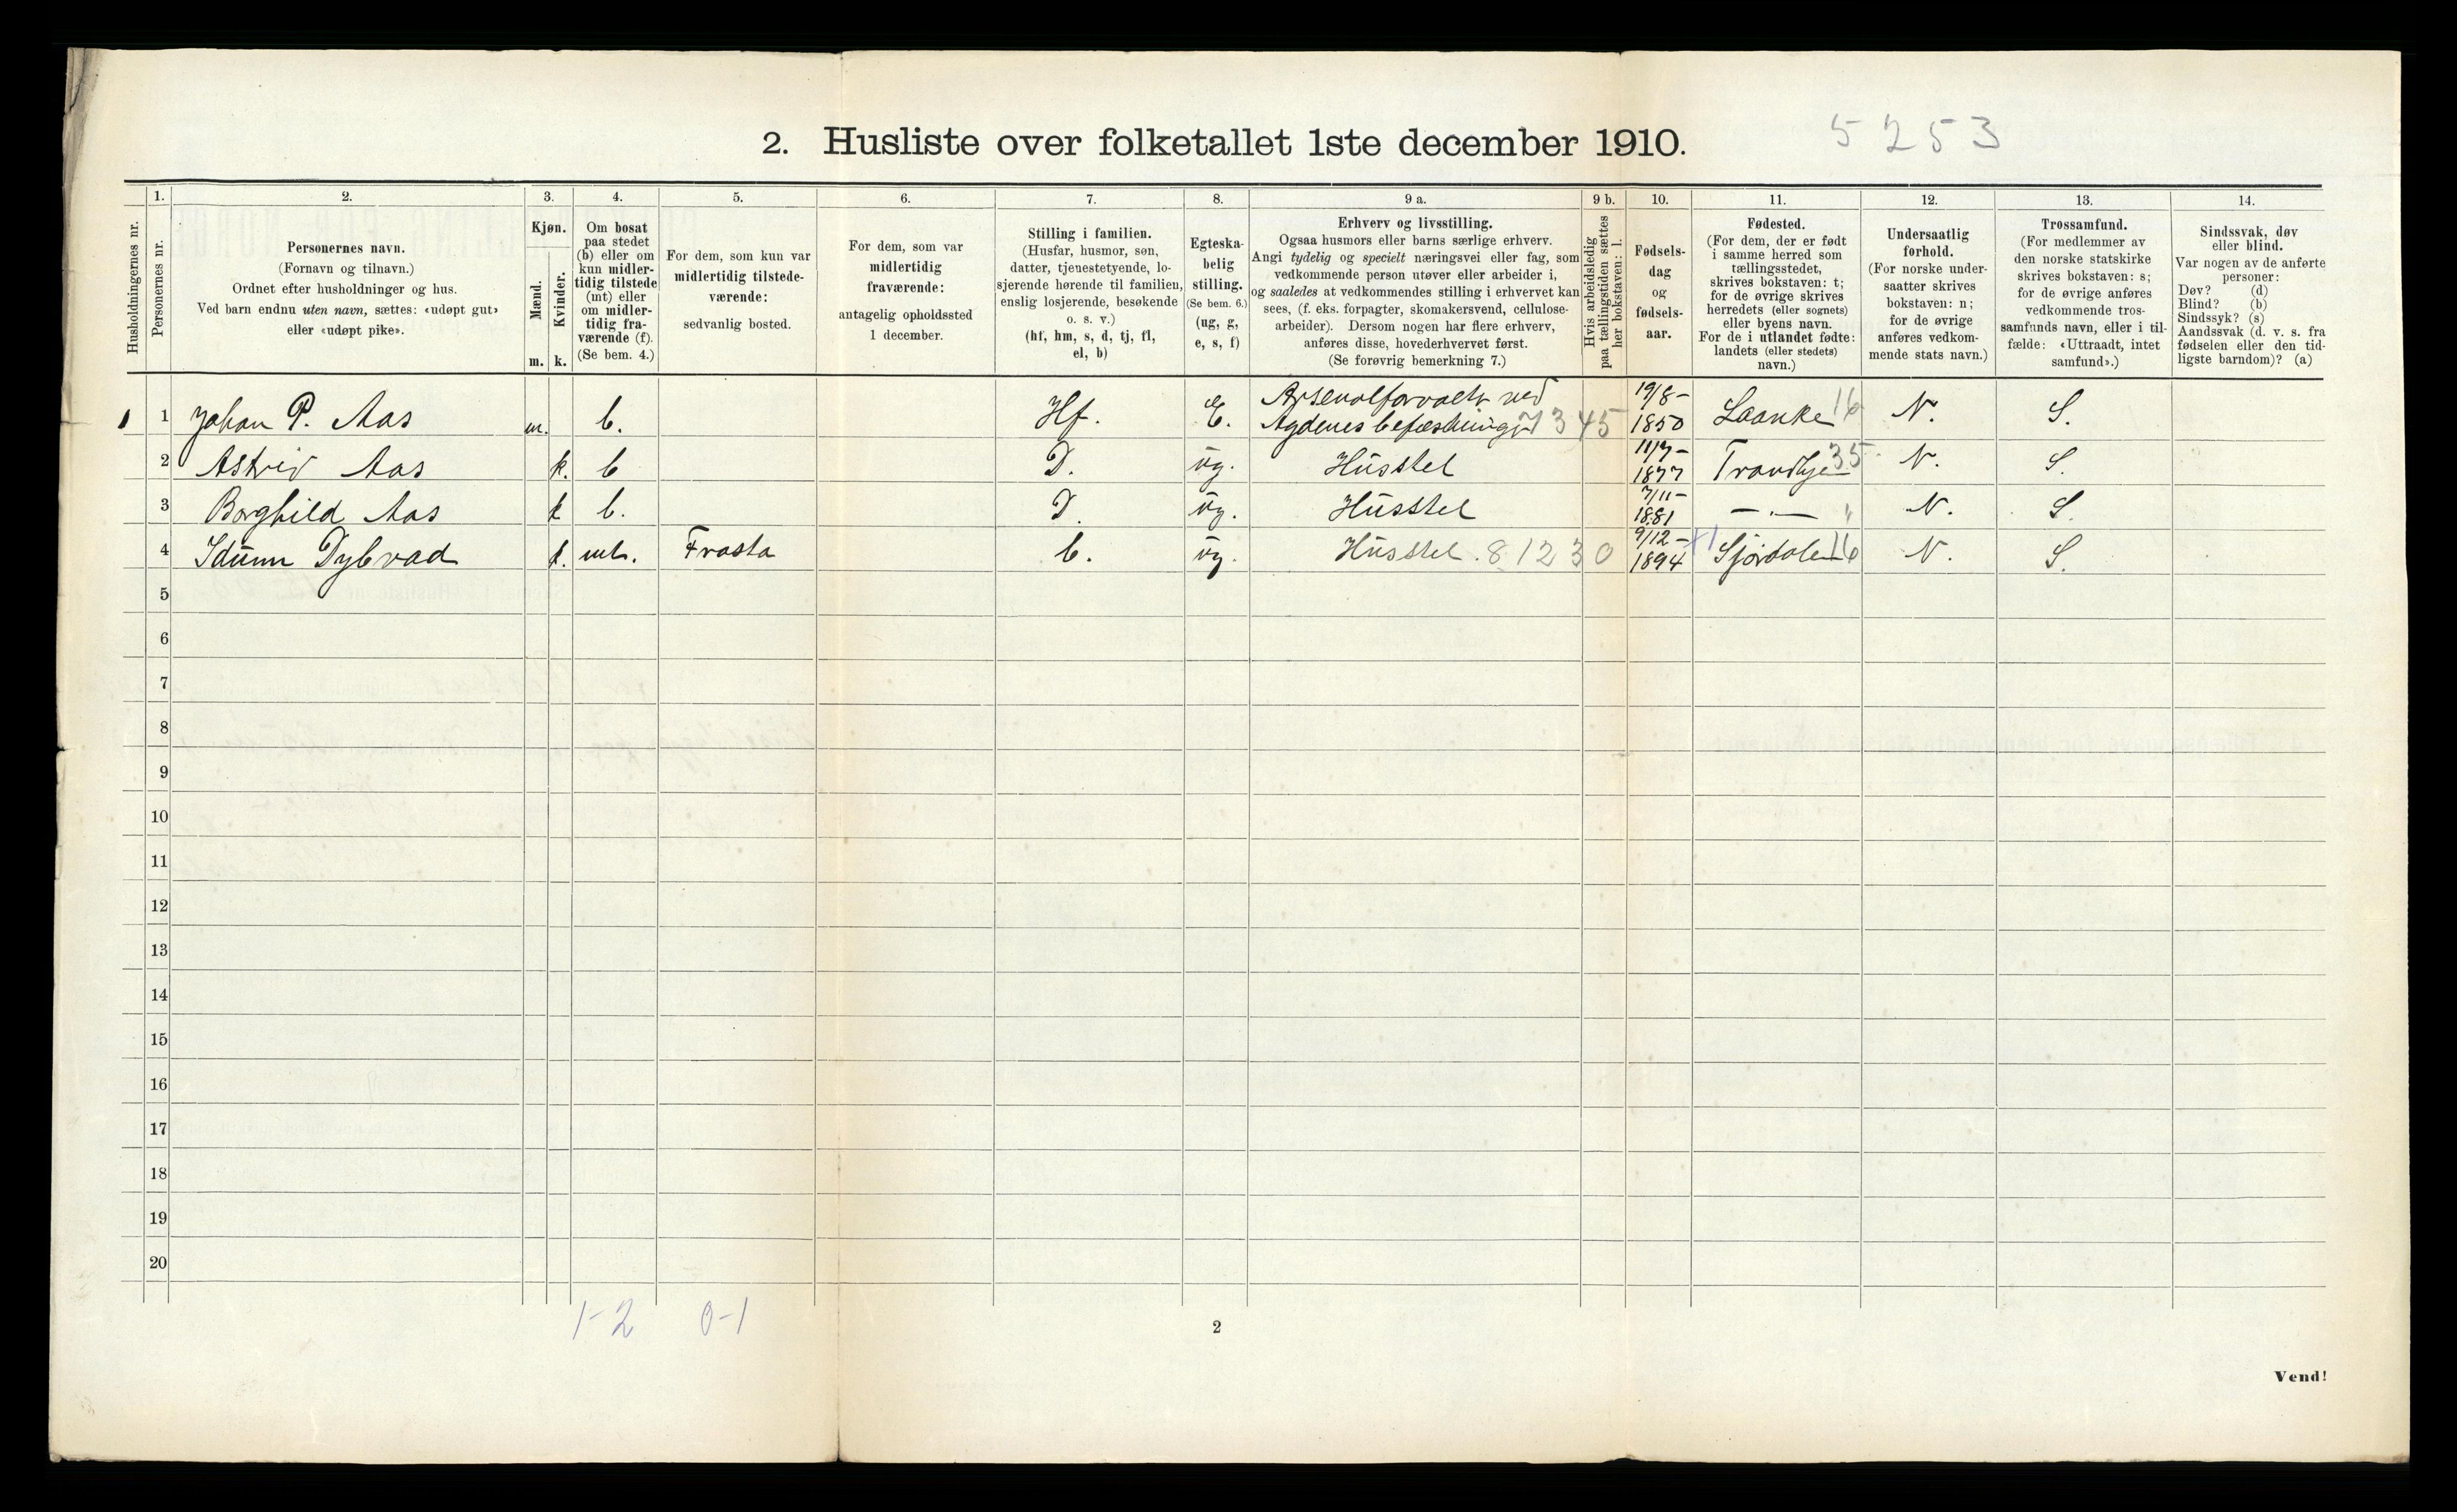 2. Husliste over folketallet 1ste december 1910.
5253
Husholdningernes nr.
1.
Personernes nr.
2.
Personernes navn.
(Fornavn og tilnavn.)
Ordnet efter husholdninger og hus.
Ved barn endnu uten navn, sættes: «udøpt gut»
eller «udøpt pike».
3.
Kjøn.
Mænd.
Kvinder.
m. k.
4.
Om bosat
paa stedet
(b) eller om
kun midler-
tidig tilstede
(mt) eller
om midler-
tidig fra-
værende (f).
(Se bem. 4.)
5.
For dem, som kun var
midlertidig tilstede-
værende:
sedvanlig bosted.
6.
For dem, som var
midlertidig
fraværende:
antagelig opholdssted
1 december.
7.
Stilling i familien.
(Husfar, husmor, søn,
datter, tjenestetyende, lo-
sjerende hørende til familien,
enslig losjerende, besøkende
o. s. v.)
(hf, hm, s, d, tj, fl,
el, b)
8.
Egteska-
belig
stilling.
(Se bem. 6.)
(ug, g,
e, s, f)
9 a.
Erhverv og livsstilling.
Ogsaa husmors eller barns særlige erhverv.
Angi tydelig og specielt næringsvei eller fag, som
vedkommende person utøver eller arbeider i,
og saaledes at vedkommendes stilling i erhvervet kan
sees, (f. eks. forpagter, skomakersvend, cellulose-
arbeider). Dersom nogen har flere erhverv,
anføres disse, hovederhvervet først.
(Se forøvrig bemerkning 7.)
9 b.
Hvis arbeidsledig
paa tællingstiden sættes
her bokstaven: l.
10.
Fødsels-
dag
og
fødsels-
aar.
11.
Fødested.
(For dem, der er født
i samme herred som
tællingsstedet,
skrives bokstaven: t;
for de øvrige skrives
herredets (eller sognets)
eller byens navn.
For de i utlandet fødte:
landets (eller stedets)
navn.)
12.
Undersaatlig
forhold.
(For norske under-
saatter skrives
bokstaven: n;
for de øvrige
anføres vedkom-
mende stats navn.)
13.
Trossamfund.
(For medlemmer av
den norske statskirke
skrives bokstaven: s;
for de øvrige anføres
vedkommende tros-
samfunds navn, eller i til-
fælde: «Uttraadt, intet
samfund».)
14.
Sindssvak, døv
eller blind.
Var nogen av de anførte
personer:
Døv? (d)
Blind? (b)
Sindssyk? (s)
Aandssvak (d. v. s. fra
fødselen eller den tid-
ligste barndom)? (a)
1 1 Johan P. Aas m. b. Hf. E. Arsenalforvalter ved Agdenes befæstninger 7345 19/8-1850 Laanke 16 N. S.
2 Astrid Aas k. b D. ug. Husstel 11/7-1877 Trondhjem 35 N. S.
3 Borghild Aas k b. D. ug. Husstel 7/11-1881 —"— " N. S.
4 Idunn Dybvad k. mt. Frosta b. ug. Husstel. 81230 9/12-1894 Sjördalen 16 N. S.
5
6
7
8
9
10
11
12
13
14
15
16
17
18
19
20
1-2 0-1
2
Vend!